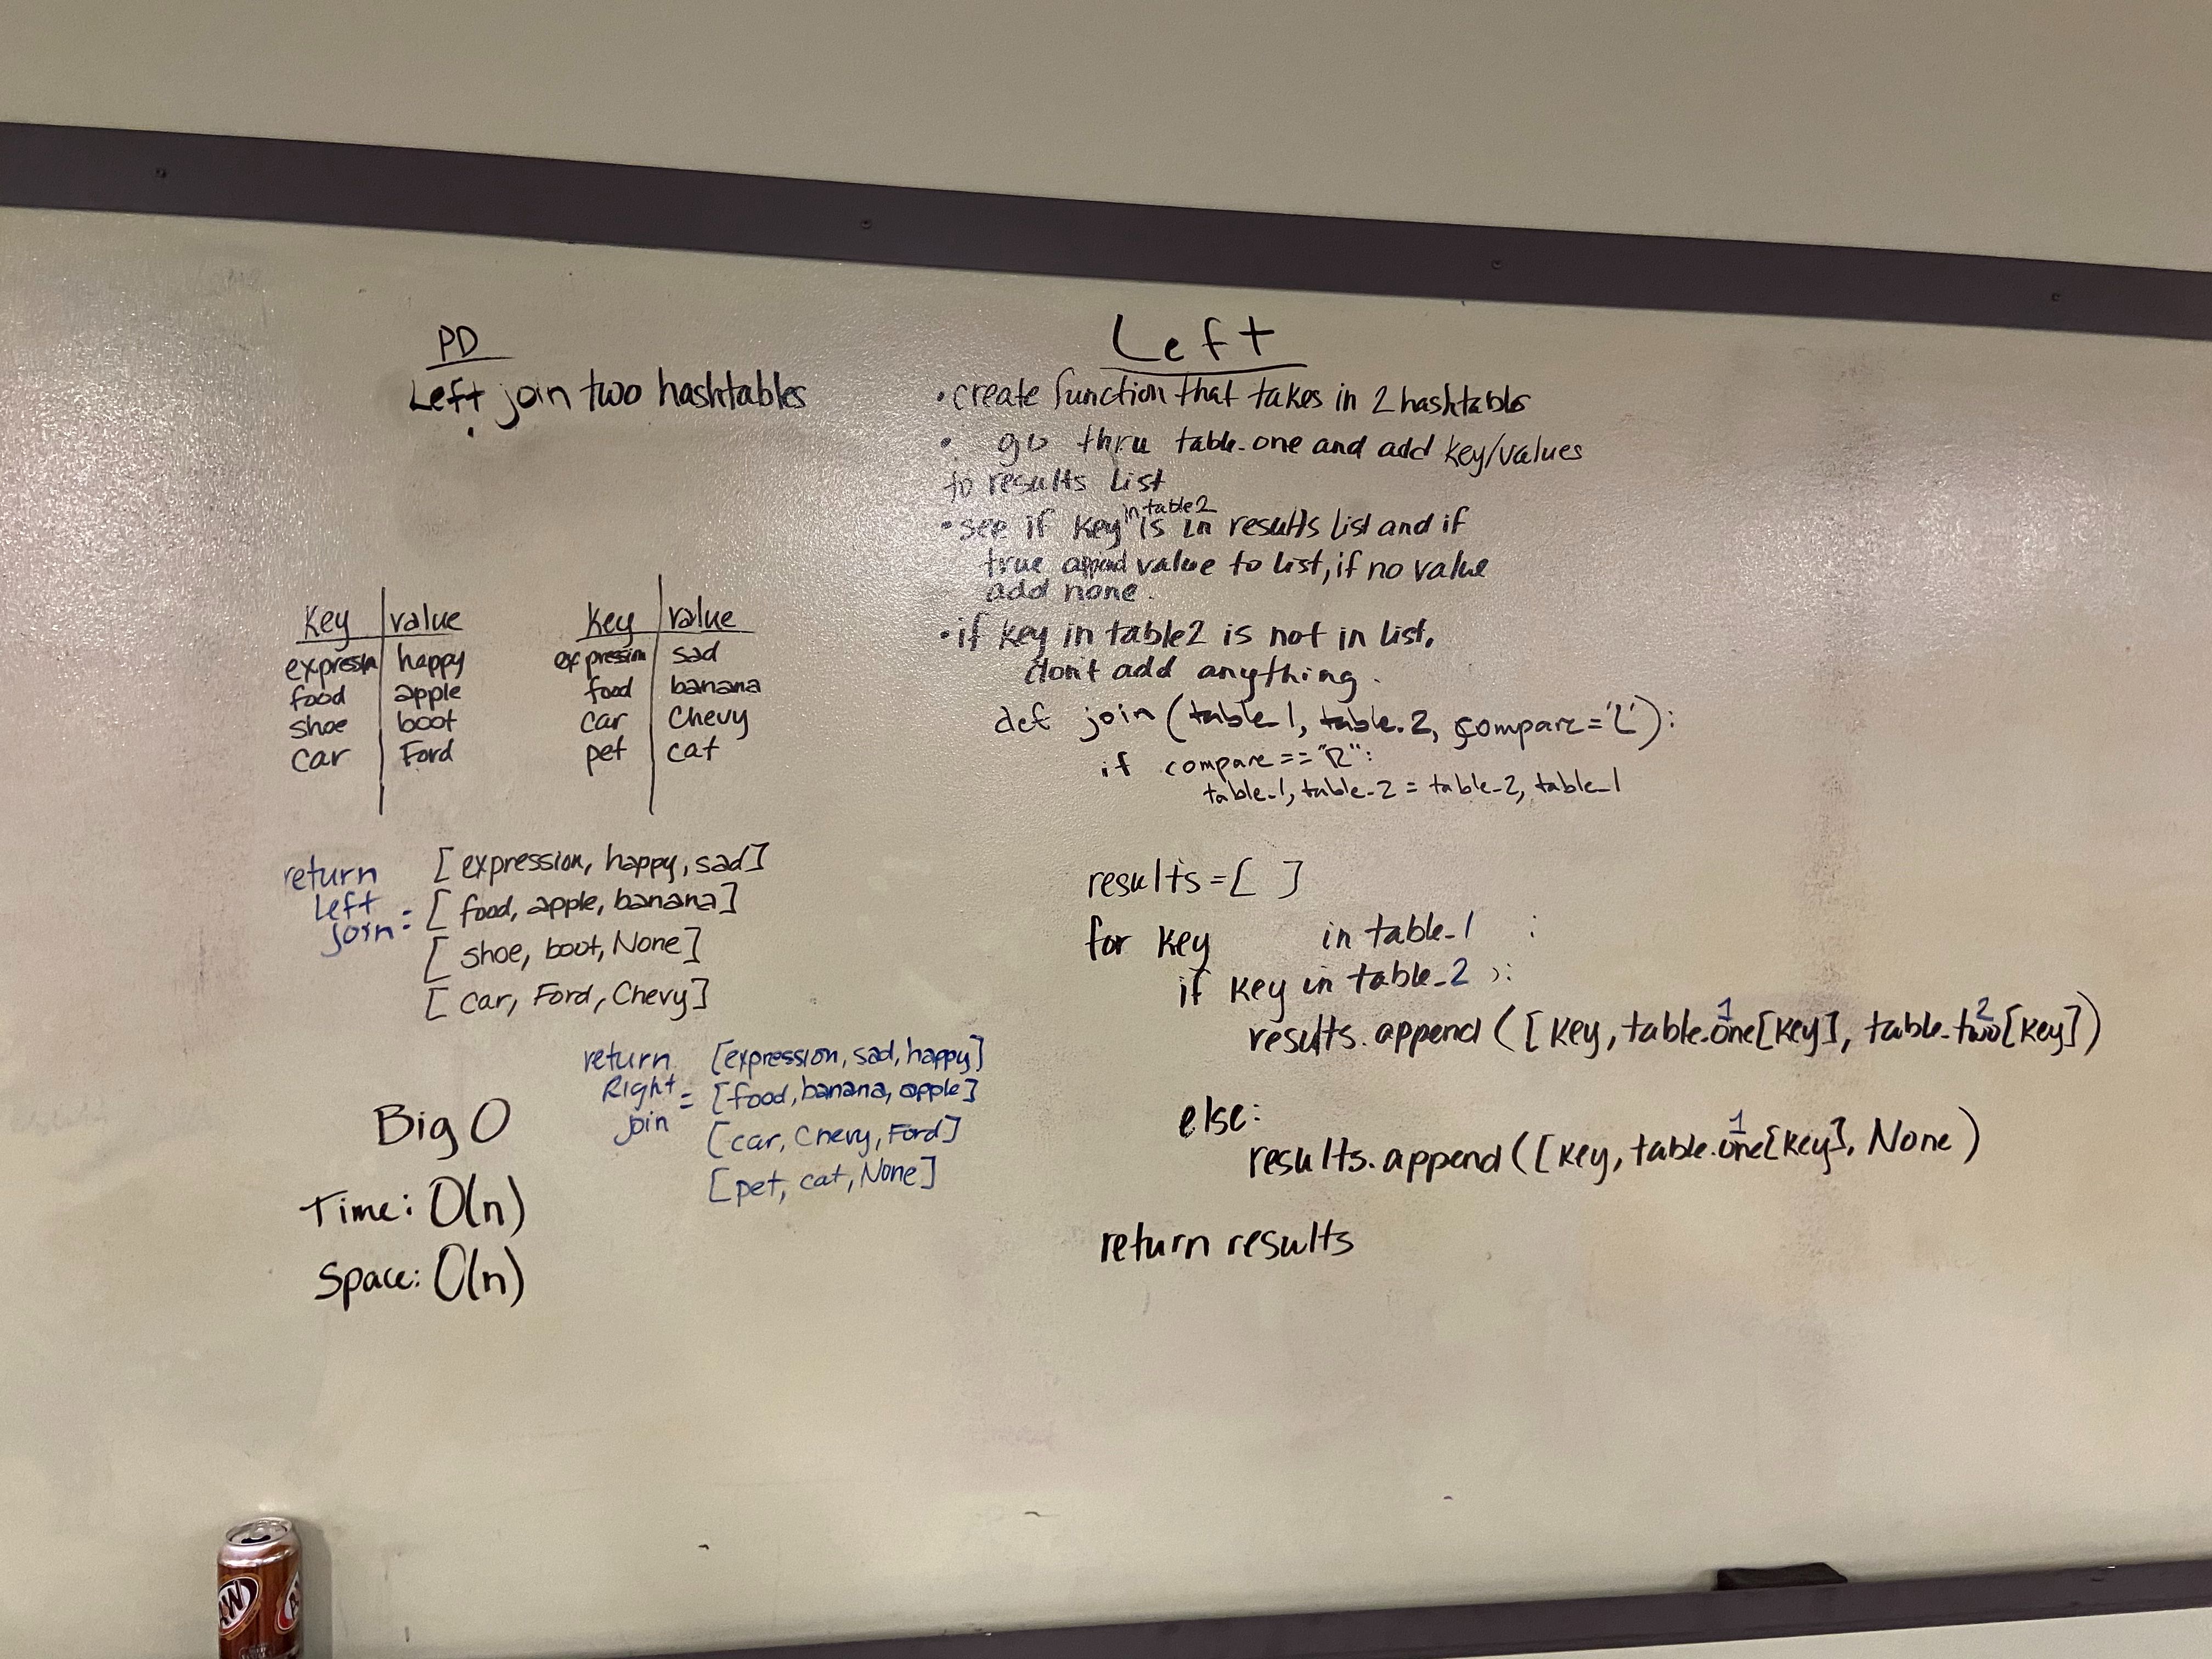 PD
Left join two hashtables
Key | value
expression | happy
food | apple
shoe | boot
car | Ford
Key | value
expression | sad
food | banana
car | Chevy
pet | cat
return Left join =
[expression, happy, sad]
[food, apple, banana]
[shoe, boot, None]
[car, Ford, Chevy]
return Right join =
[expression, sad, happy]
[food, banana, apple]
[car, Chevy, Ford]
[pet, cat, None]
Big O
Time: O(n)
Space: O(n)
Left
• create function that takes in 2 hashtables
• go thru table-one and add key/values
to results list
• see if key in table2 is in results list and if
true append value to list, if no value
add none.
• if key in table2 is not in list,
dont add anything.
def join (table_1, table_2, compare='L'):
if compare == "R":
table_1, table_2 = table_2, table_1
results = [ ]
for key in table_1 :
if key in table_2 ):
results.append([key, table.one[key], table.two[key])
1 2
else:
results.append([key, table.one[key], None)
1
return results
AW